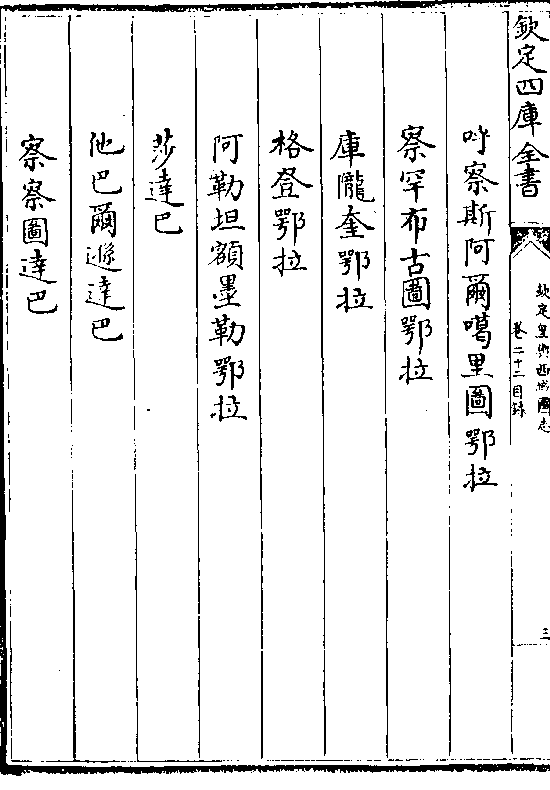 欽定四庫全書
欽定皇輿西域圖志
卷二十二目錄
三
呼察斯阿爾噶里圖鄂拉
察罕布古圖鄂拉
庫隴奎鄂拉
格登鄂拉
阿勒坦額墨勒鄂拉
莎達巴
他巴爾遜達巴
察察圖達巴